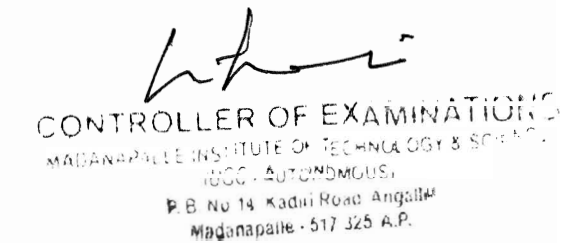 CONTROLLER OF EXAMINATIONS
MADANAPALLE INSTITUTE OF TECHNOLOGY & SCIENCE
(UGC - AUTONOMOUS)
P. B. No 14 Kadiri Road Angallu
Madanapalle - 517 325 A.P.